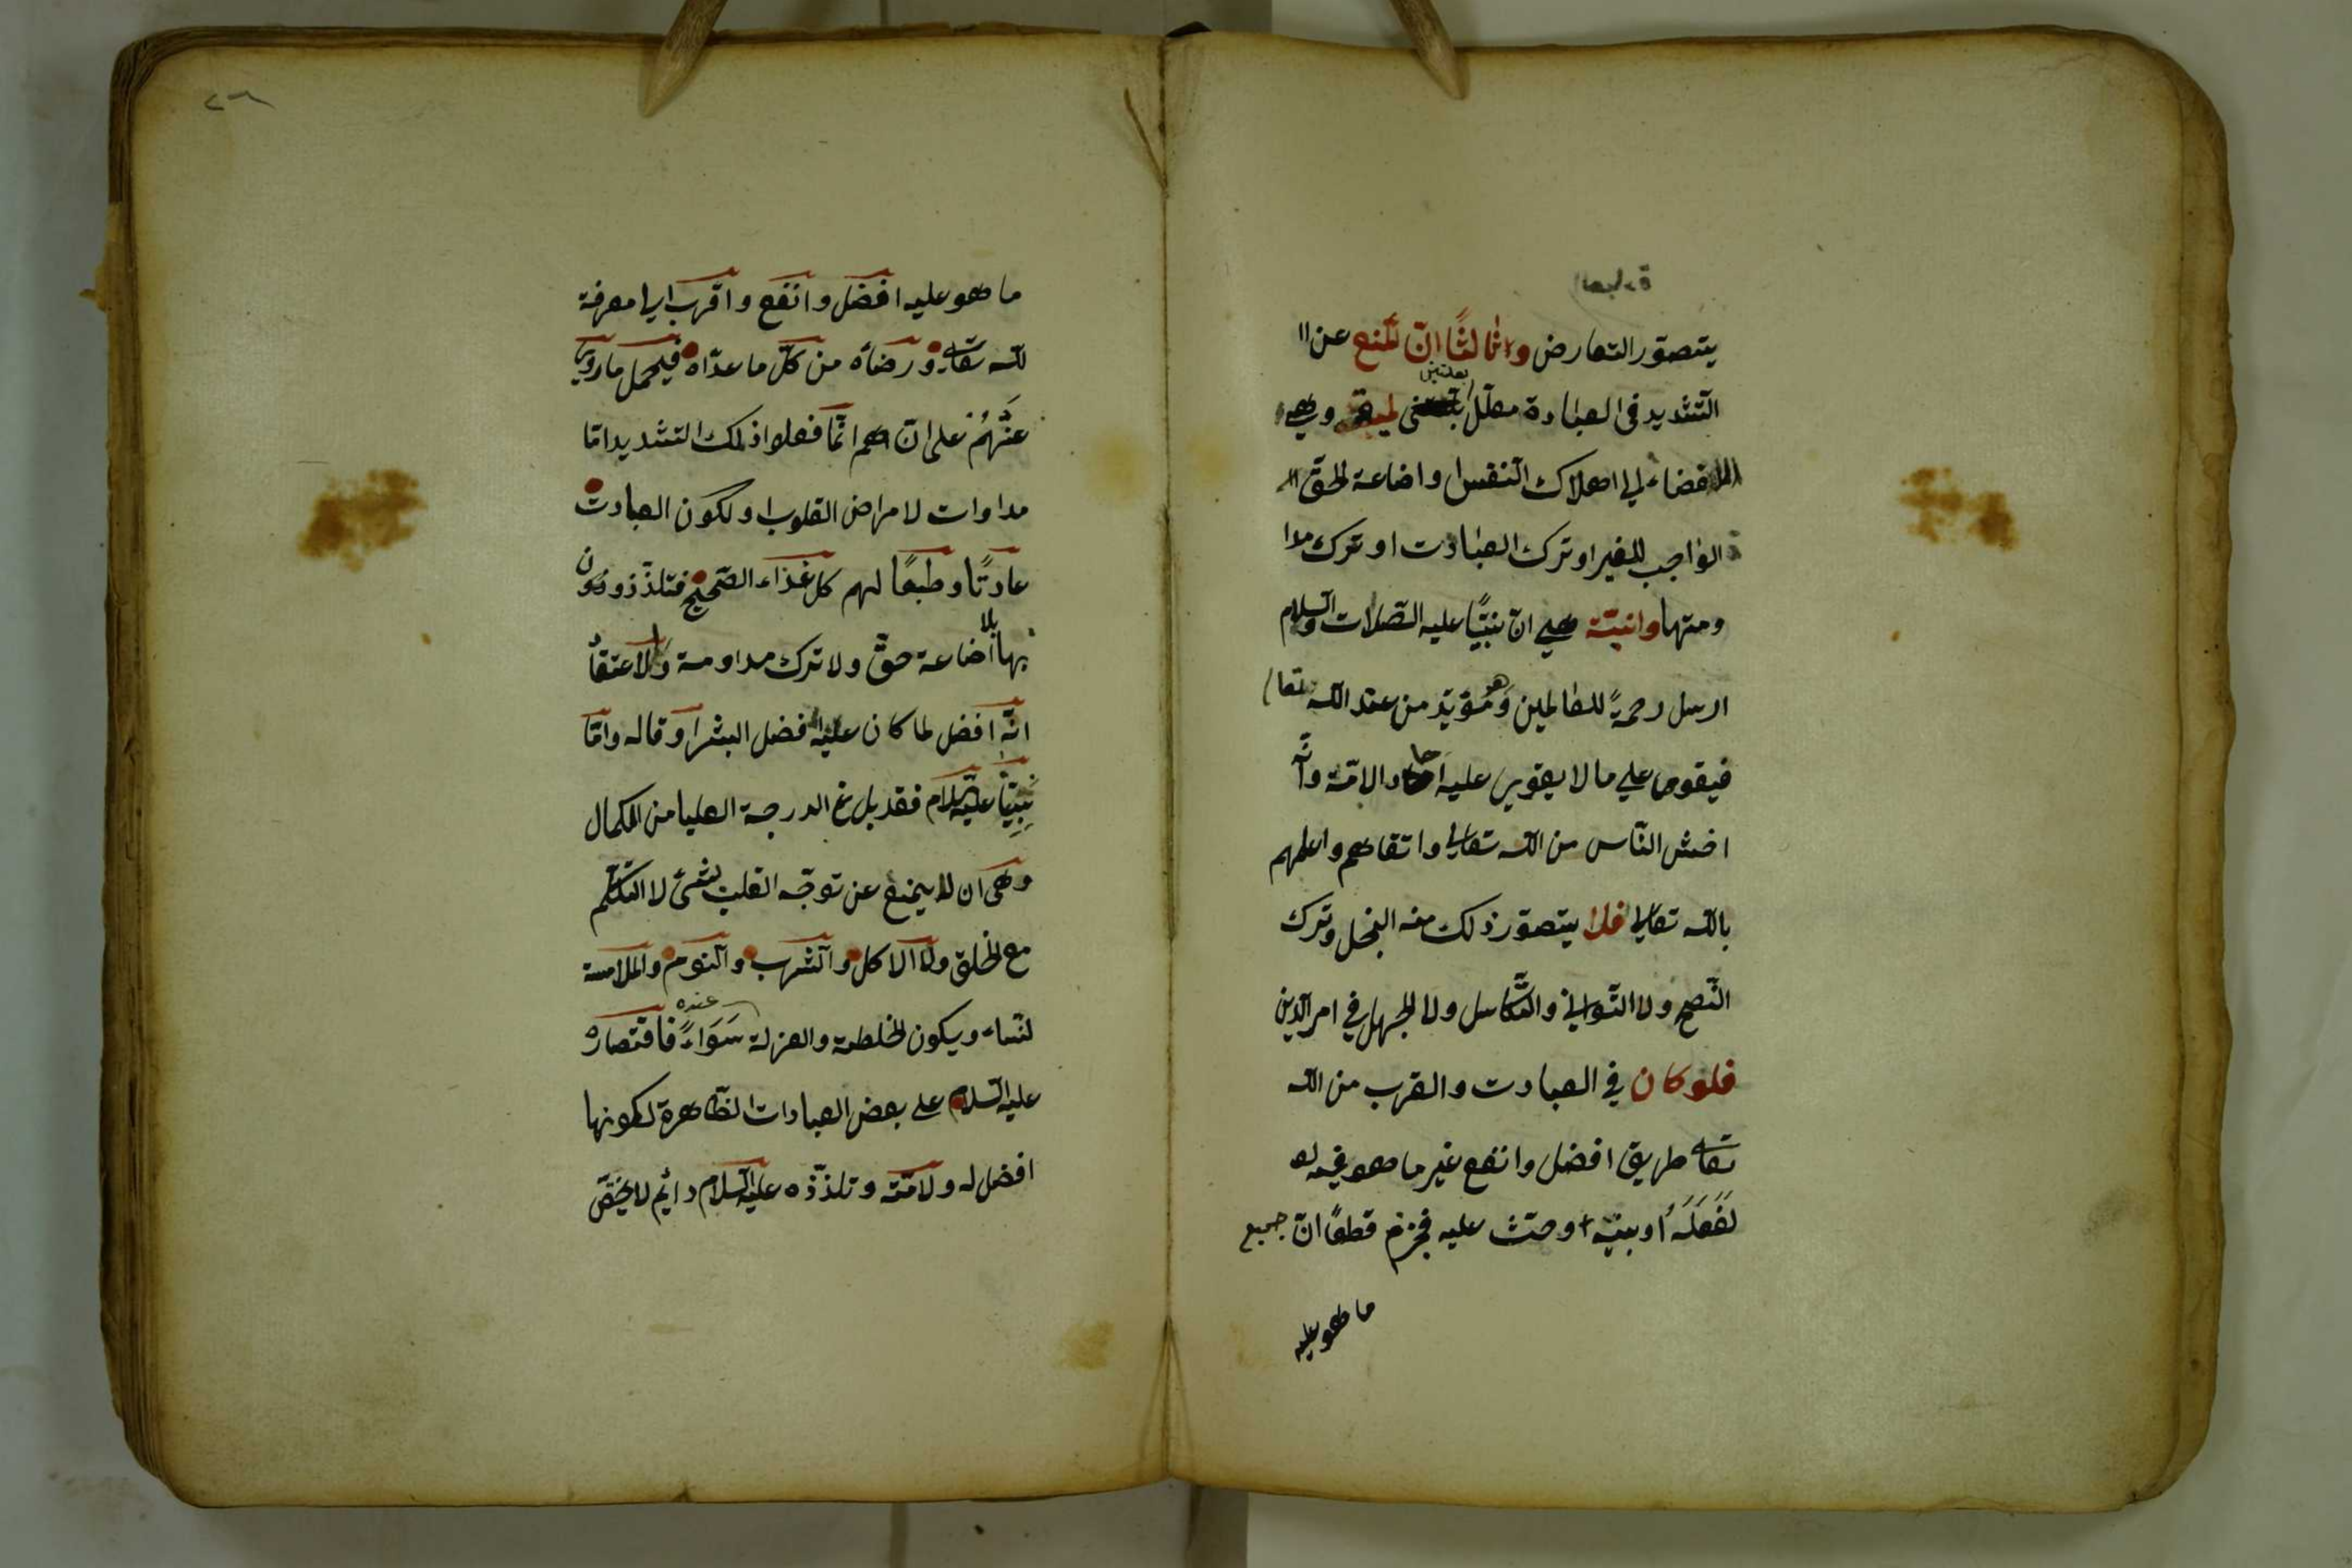 يتصوّر التعارض وثالثًا انّ المنع عن
التّشديد فى العبادة معلّل بعلتين لميّة وهى
الافضاء الى اهلاك النفس او اضاعة الحقّ
الواجب للغير او ترك العبادت او ترك مدا
ومتها وانيّة هى انّ نبيًّا عليه الصّلات والسّلام
ارسل رحمةً للعالمين وهو مؤيّد من عند اللّه تعا
فيقوى على ما لا يقوى عليه احاد الامّة وانّه
اخشى النّاس من اللّه تعالى واتقاهم واعلمهم
باللّه تعالى فلا يتصوّر ذلك منه البخل وترك
النّصح ولا التّوانى والتّكاسل ولا الجهل فى امر الدّين
فلو كان فى العبادت والقرب من اللّه
تعالى طريق افضل وانفع غير ما هو فيه
لَفَعَلَهُ او بيّنه او حثّ عليه فجزم قطعًا انّ جميع
ما هو عليه
٢٦
ما هو عليه افضل وانفع واقرب الى معرفة
للّه تعالى ورضاه من كلّ ما عداه فيحمل ما روى
عَنْهُمْ على انّهم انّما فعلوا ذلك التشديد امّا
مداوات لامراض القلوب او لكون العبادت
عادتًا وطبعًا لهم كالغذاء الصّحيح فتلذّذوون
بها بلا اضاعة حقّ ولا ترك مداومة ولا اعتقاد
انّه افضل لما كان عليه افضل البشر او قاله وامّا
نبيّنا عليه السّلام فقد بلغ الدرجة العليا من الكمال
وهى ان لا يمنع عن توجّه القلب شىء لا التكلّم
مع الخلق ولا الاكل والشّرب والنّوم والملامسة
لنساء ويكون الخلطة والعزلة عنده سَوَاءً فاقتصاره
عليه السّلام على بعض العبادات الظّاهرة لكونها
افضل له ولامّته وتلذّذه عليه السّلام دائم لا يختصّ